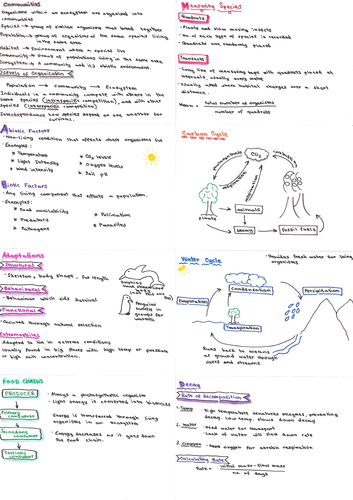 Communities
Organisms within an ecosystem are organised into communities
Species → group of similar organisms that breed together
Population → group of organisms of the same species living in the same area
Habitat → Environment where a species live
Community → Group of populations living in the same area
Ecosystem → A community and its abiotic environment.
Levels of Organisation
Population → Community → Ecosystem
Individuals in a community compete with others in the same species (intraspecific competition), and with other species (interspecific competition).
Interdependence: how species depend on one another for survival.
Measuring Species
Quadrats
Plants and slow moving insects
No. of each type of species is recorded
Quadrats are randomly placed
Transects
Long line of measuring tape with quadrats placed at intervals, usually every metre
Usually used when habitat changes over a short distance.
Mean = total number of organisms
number of quadrats
Abiotic Factors
Non-living condition that affects where organisms live
Examples:
Temperature
Light Intensity
Wind intensity
CO₂ levels
Oxygen levels
Soil pH
Biotic Factors
Any living component that affects a population
Examples:
Food availability
Predators
Pathogens
Pollination
Parasites
Carbon Cycle
CO₂
photosynthesis
respiration
combustion
plants
animals
decay
Fossil Fuels
Adaptations
Structural
Skeleton, body shape, fur length
Behavioural
Behaviour which aids survival
Functional
Occurred through natural selection
Extremophiles
Adapted to live in extreme conditions
Usually found in big places with high temp or pressure or high salt concentration.
Penguins huddle in groups for warmth
Water Cycle
Provides fresh water for living organisms
Condensation
Precipitation
Evaporation
Transpiration
Runs back to oceans as ground water through rivers and streams
Food Chains
PRODUCER
Primary consumer
Secondary consumer
Tertiary consumer
Always a photosynthetic organism
Light energy is converted into biomass
Energy is transferred through living organisms in an ecosystem
Energy decreases as it goes down the food chain.
Decay
Rate of decomposition
1. Temp
High temperature denatures enzymes, preventing decay. Low temp. slows down decay
2. Water
Need water for transport
Lack of water will slow down rate
3. Oxygen
Need oxygen for aerobic respiration
Calculating Rate
Rate = initial mass - final mass
no. of days